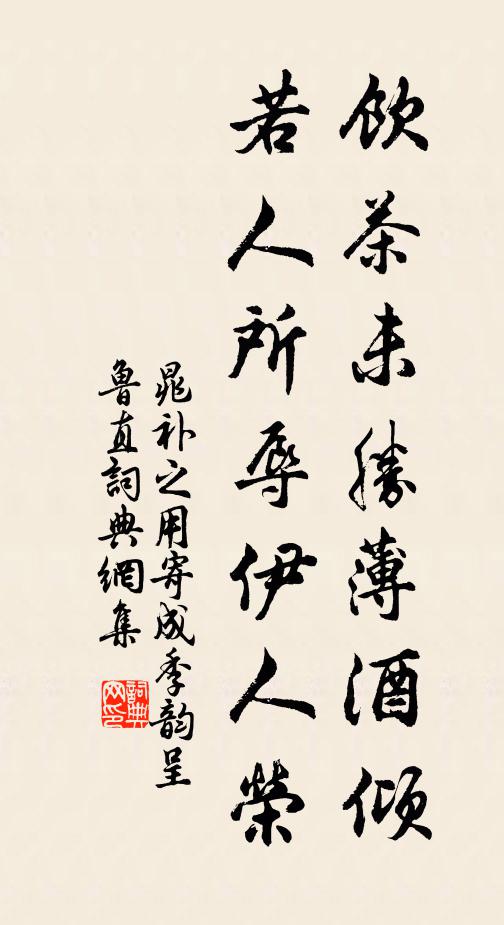 飲茶未勝薄酒傾
若人所辱伊人榮
晁补之用寄成季韵呈
魯直詞典網集
詞典网印